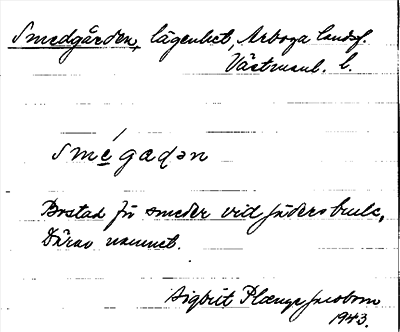 Smedgården, lägenhet, Arboga landsf.
Västmanl. l.
smégaɖən
Bostad för smeder vid Jäders bruk,
Därav namnet.
Sigbrit Plænge Jacobson
1943.